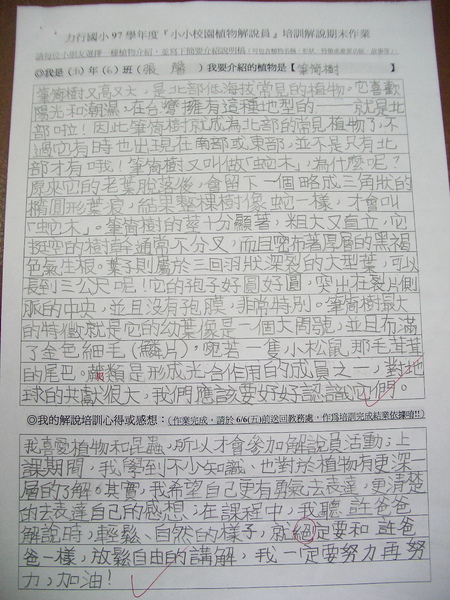 力行國小97學年度『小小校園植物解說員』培訓解說期末作業
請每位小朋友選擇一種植物介紹，並寫下簡要介紹說明稿
◎我是(5)年(6)班(張 )我要介紹的植物是【筆筒樹 】
筆筒樹又高又大，是北部低海拔常見的植物。它喜歡
陽光和潮濕，在台灣擁有這種地型的——就是北
部啦！因此筆筒樹就成為北部的常見植物了，不
過它有時也出現在南部或東部，並不是只有北
部才有哦！筆筒樹又叫做「蛇木」，為什麼呢？
原來它的老葉脫落後，會留下一個略成三角狀的
橢圓形葉痕，結果整棵樹像蛇一樣，才會叫
「蛇木」。筆筒樹的莖十分顯著，粗大又直立，它
挺圼的樹幹通常不分叉，而且密布著厚層的黑褐
色氣生根。葉子則屬於三回羽狀深裂的大型葉，可以
長到三公尺呢！它的孢子好圓好圓，突出在裂片側
脈的中央，並且沒有孢膜，非常特別。筆筒樹最大
的特徵就是它的幼葉像是一個大問號，並且布滿
了金色細毛(鱗片)，宛若一隻小松鼠那毛茸茸
的尾巴。蕨類是形成光合作用的成員之一，對地
球的共獻很大，我們應該要好好認識它們。
◎我的解說培訓心得或感想：(作業完成，請於6/6(五)前送回教務處，作為培訓完成結業依據唷!!)
我喜愛植物和昆蟲，所以才會參加解說員活動；上
課期間，我學到不少知識，也對於植物有更深
層的了解。其實，我希望自己更有勇氣去表達，更清楚
的去表達自己的感想；在課程中，我聽許爸爸
解說時，輕鬆、自然的樣子，就絕定要和許爸
爸一樣，放鬆自由的講解，我一定要努力再努
力，加油！